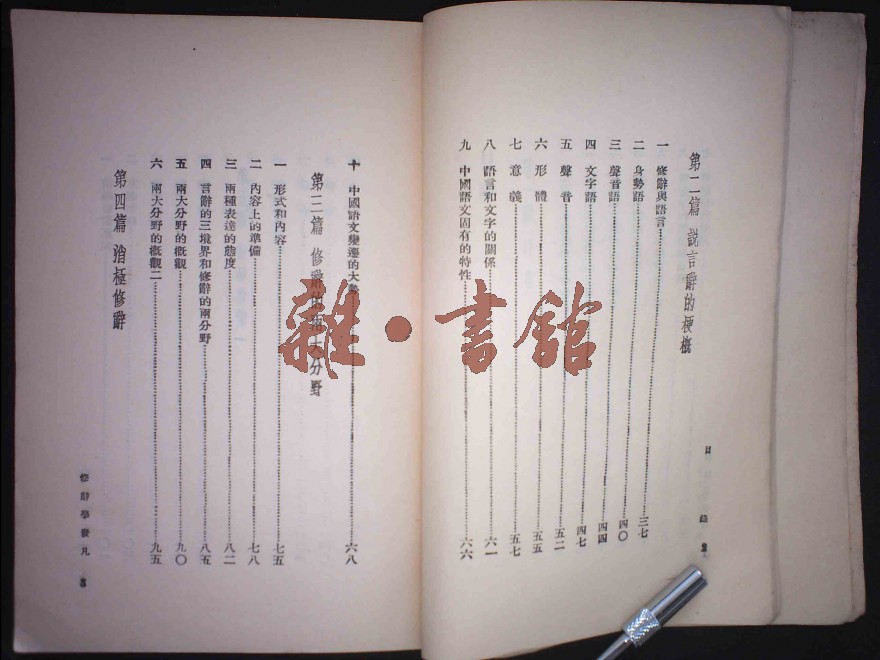 第二篇 說言辭的梗概
一 修辭與語言 三七
二 身勢語 四〇
三 聲音語 四四
四 文字語 四七
五 聲音 五二
六 形體 五五
七 意義 五七
八 語言和文字的關係 六一
九 中國語文固有的特性 六六
目錄 2
十 中國語文變遷的大勢 六八
第三篇 修辭的兩大分野
一 形式和內容 七五
二 內容上的準備 七八
三 兩種表達的態度 八二
四 言辭的三境界和修辭的兩分野 八五
五 兩大分野的概觀一 九〇
六 兩大分野的概觀二 九五
第四篇 消極修辭
修辭學發凡 3
雜·書館